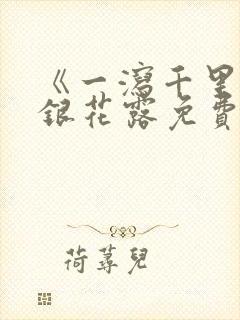 《一瀉千里
銀花露免費
荷蕁兒